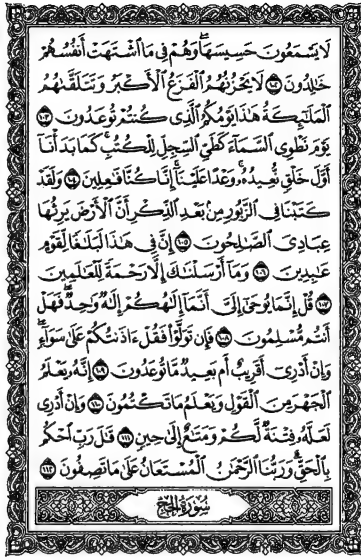 لَا يَسْمَعُونَ حَسِيسَهَا ۖ وَهُمْ فِي مَا ٱشْتَهَتْ أَنفُسُهُمْ
خَـٰلِدُونَ ١٠٢ لَا يَحْزُنُهُمُ ٱلْفَزَعُ ٱلْأَكْبَرُ وَتَتَلَقَّىٰهُمُ
ٱلْمَلَـٰٓئِكَةُ هَـٰذَا يَوْمُكُمُ ٱلَّذِي كُنتُمْ تُوعَدُونَ ١٠٣
يَوْمَ نَطْوِي ٱلسَّمَآءَ كَطَيِّ ٱلسِّجِلِّ لِلْكُتُبِ ۚ كَمَا بَدَأْنَآ
أَوَّلَ خَلْقٍ نُّعِيدُهُۥ ۚ وَعْدًا عَلَيْنَآ ۚ إِنَّا كُنَّا فَـٰعِلِينَ ١٠٤ وَلَقَدْ
كَتَبْنَا فِي ٱلزَّبُورِ مِنۢ بَعْدِ ٱلذِّكْرِ أَنَّ ٱلْأَرْضَ يَرِثُهَا
عِبَادِيَ ٱلصَّـٰلِحُونَ ١٠٥ إِنَّ فِي هَـٰذَا لَبَلَـٰغًا لِّقَوْمٍ
عَـٰبِدِينَ ١٠٦ وَمَآ أَرْسَلْنَـٰكَ إِلَّا رَحْمَةً لِّلْعَـٰلَمِينَ
١٠٧ قُلْ إِنَّمَا يُوحَىٰٓ إِلَيَّ أَنَّمَآ إِلَـٰهُكُمْ إِلَـٰهٌ وَٰحِدٌ ۖ فَهَلْ
أَنتُم مُّسْلِمُونَ ١٠٨ فَإِن تَوَلَّوْا۟ فَقُلْ ءَاذَنتُكُمْ عَلَىٰ سَوَآءٍ ۖ
وَإِنْ أَدْرِيٓ أَقَرِيبٌ أَم بَعِيدٌ مَّا تُوعَدُونَ ١٠٩ إِنَّهُۥ يَعْلَمُ
ٱلْجَهْرَ مِنَ ٱلْقَوْلِ وَيَعْلَمُ مَا تَكْتُمُونَ ١١٠ وَإِنْ أَدْرِي
لَعَلَّهُۥ فِتْنَةٌ لَّكُمْ وَمَتَـٰعٌ إِلَىٰ حِينٍ ١١١ قَـٰلَ رَبِّ ٱحْكُم
بِٱلْحَقِّ ۗ وَرَبُّنَا ٱلرَّحْمَـٰنُ ٱلْمُسْتَعَانُ عَلَىٰ مَا تَصِفُونَ ١١٢
سُورَةُ الْحَجِّ